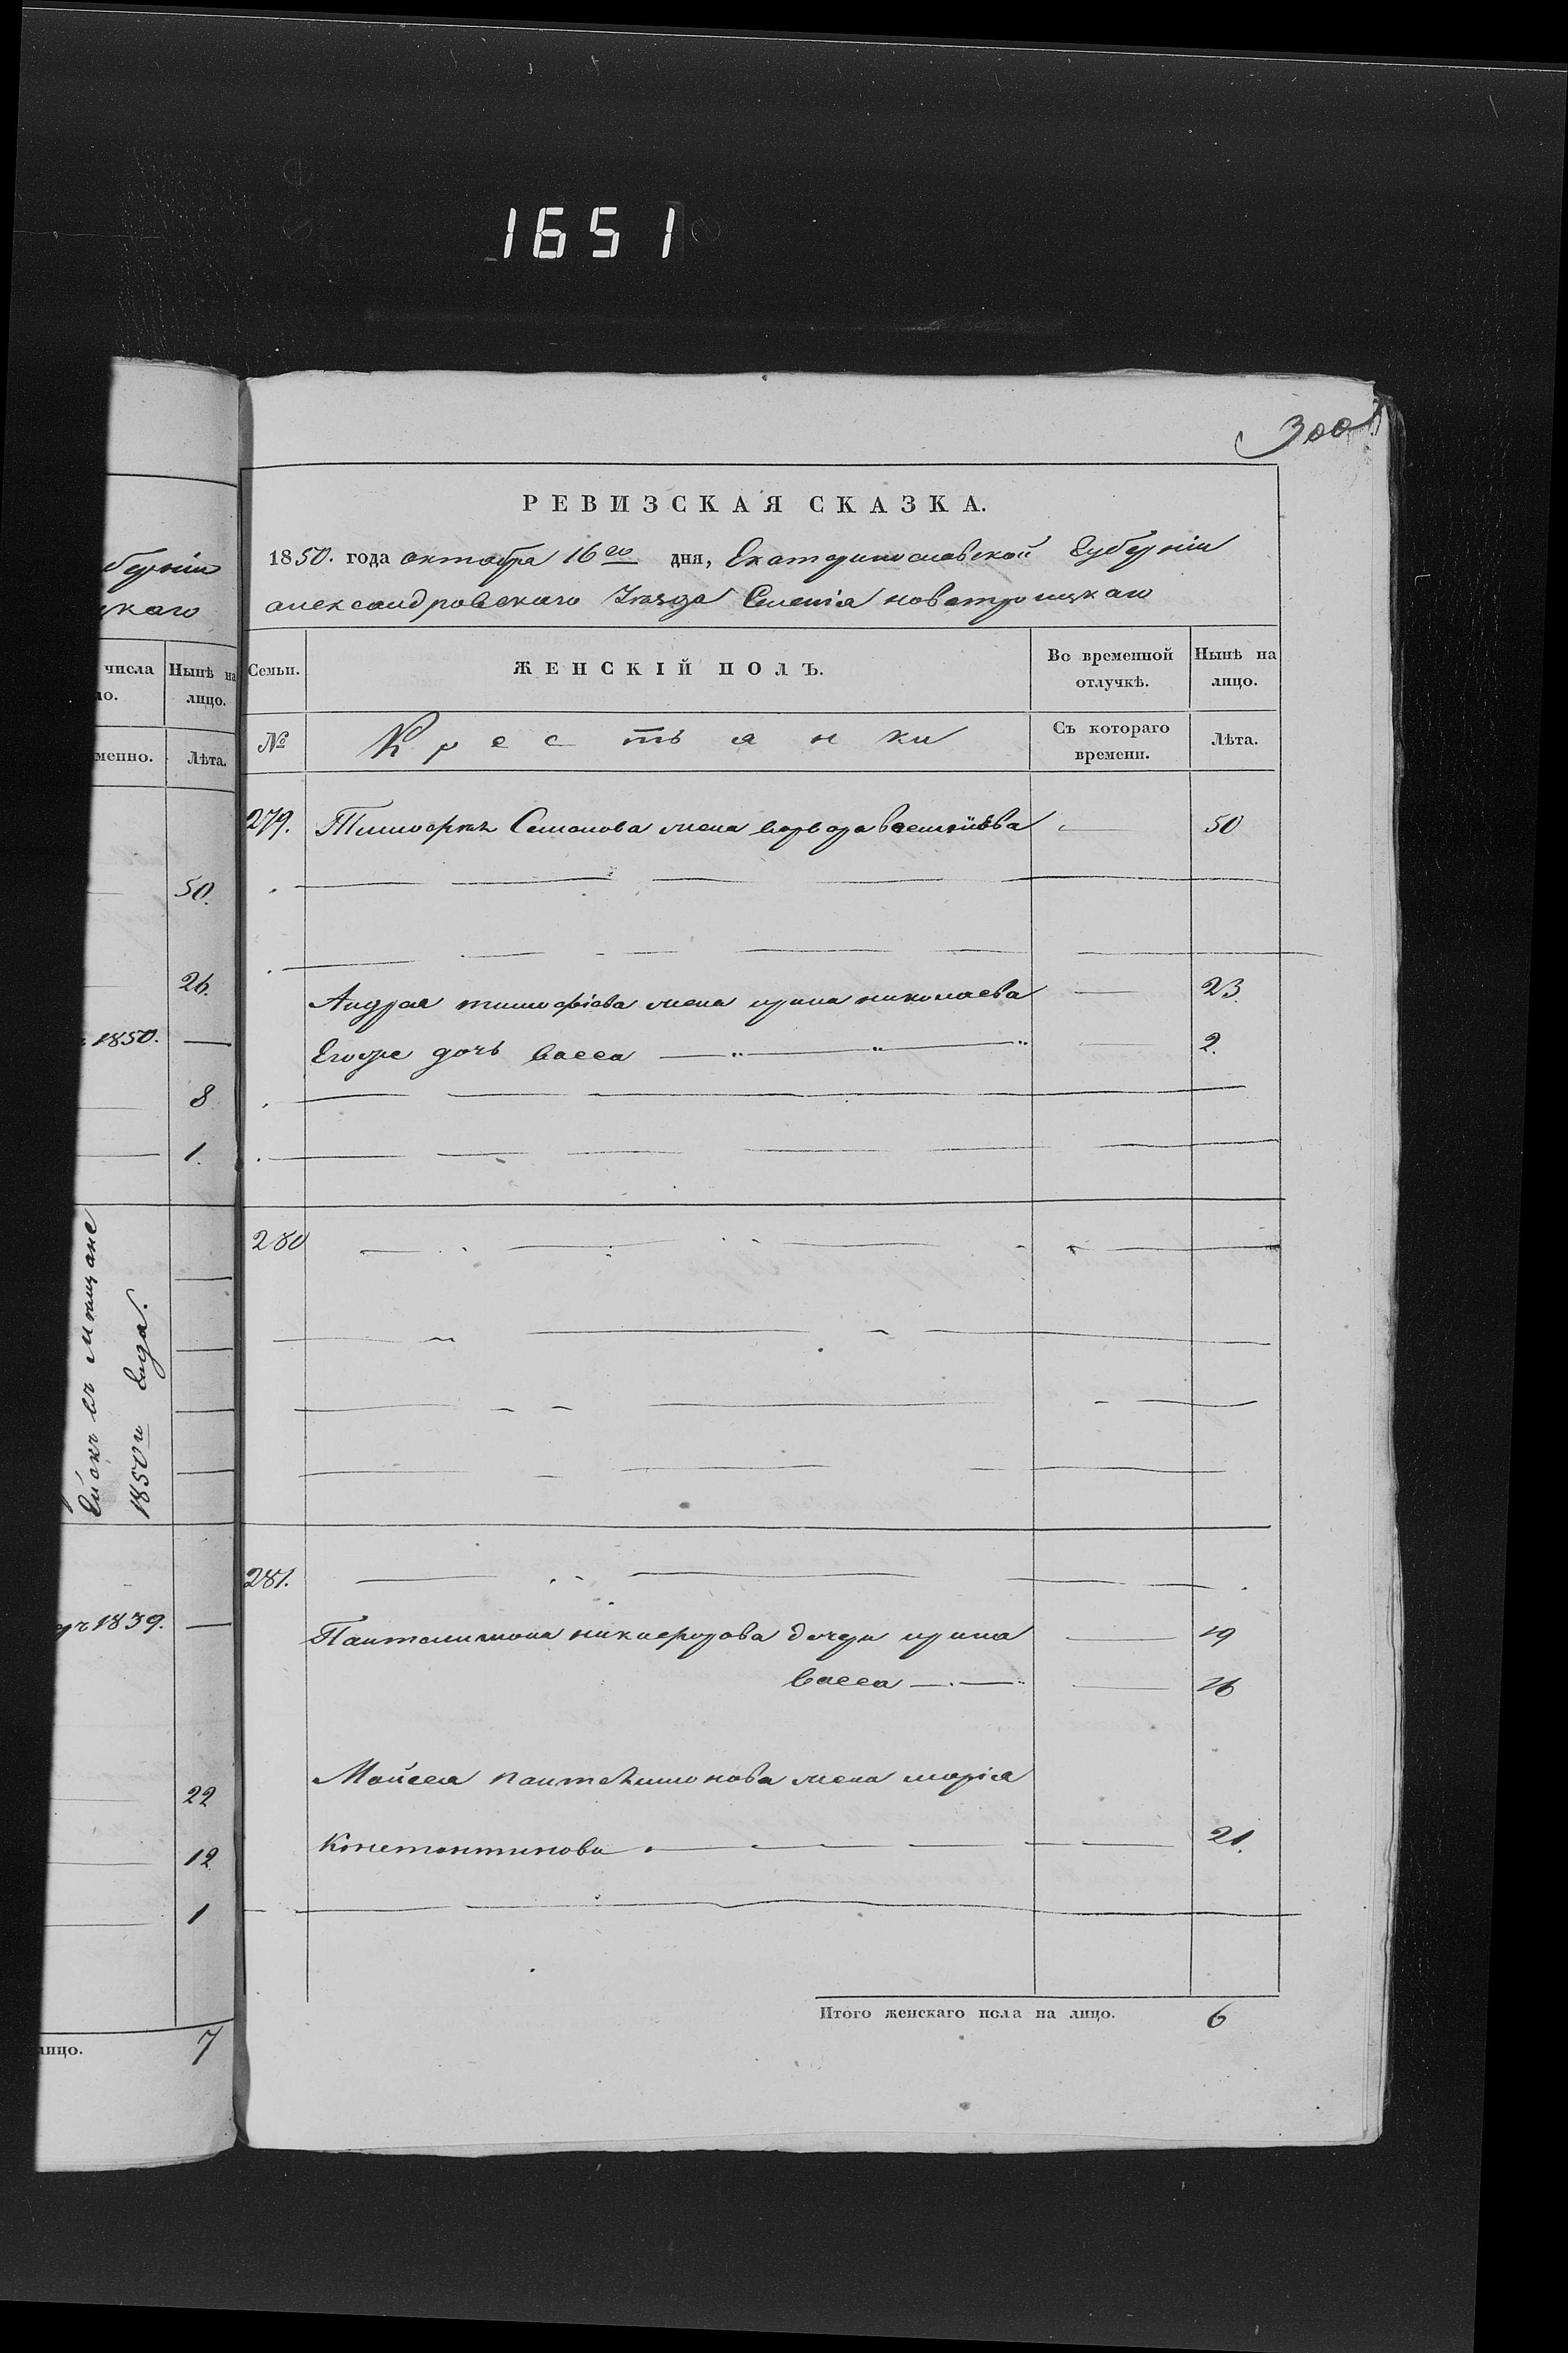 1651
300
РЕВИЗСКАЯ СКАЗКА.
1850. года октобра 16го дня, Екатеринославской Губерніи
александровскаго Уѣзда Селенія новотроицкаго
Семьи. ЖЕНСКІЙ ПОЛЪ. Во временной отлучкѣ. Нынѣ на лицо.
№ Крестьянки Съ котораго времени. Лѣта.
279. Тимофея Семенова жена варвара — 50
Андрея тимофіева жена ирина николаева — 23.
Егоже дочь васса — „ — „ — „ — 2.
280
281.
Пантелимона никифорова дочери ирина — 19
васса — 16
Мойсея пантелимонова жена марія
Констонтинова — 21.
Итого женскаго пола на лицо. 6
берніи
цкаго
числа Нынѣ на
ло. лицо.
менно. Лѣта.
50.
26.
1850. —
8
1.
въ Мещане
1850го года.
1839. —
22
12
1
лицо. 7